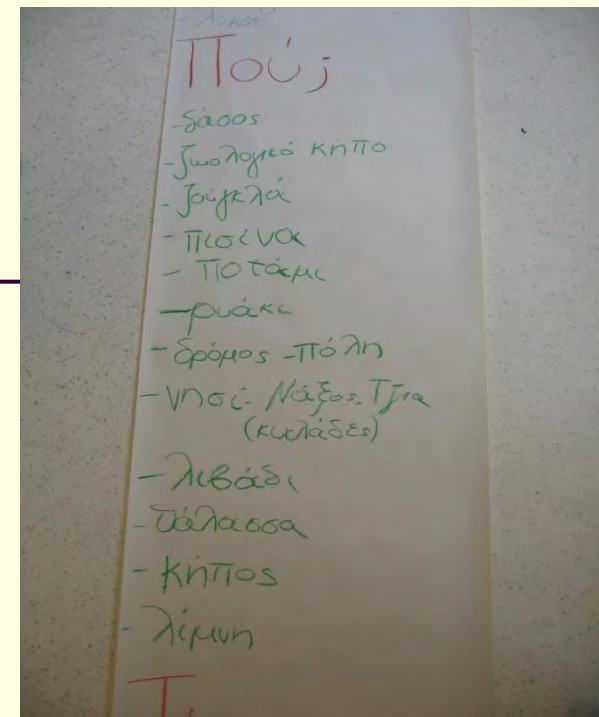 - λύκος
Πού;
- δάσος
- ζωολογικό κήπο
- ζούγκλα
- πισίνα
- ποτάμι
- ρυάκι
- δρόμος - πόλη
- νησί - Νάξος, Τζια
(κυκλάδες)
- λιβάδι
- θάλασσα
- κήπος
- λίμνη